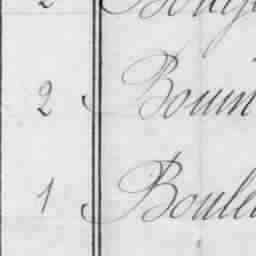 2 Bouin
1 Boule